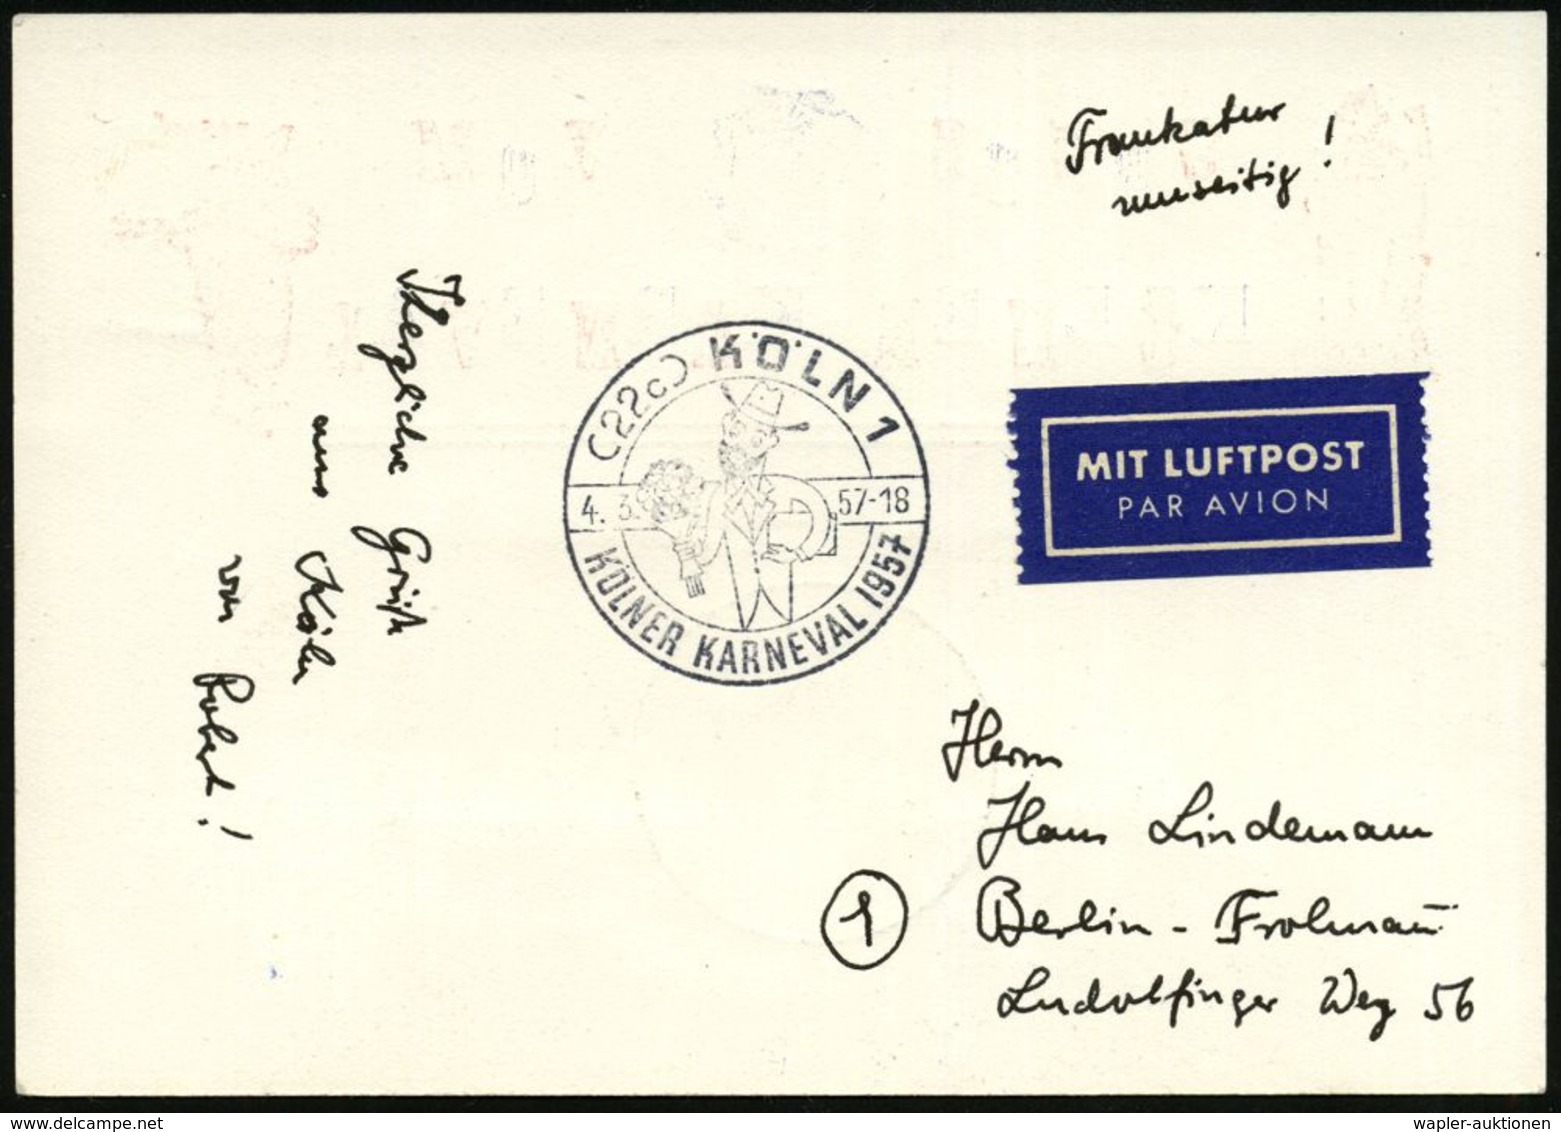 Frankatur
umseitig!
Herzliche Grüße
aus Köln
von Robert!
(22c) KÖLN 1
4. 3. 57-18
KÖLNER KARNEVAL 1957
MIT LUFTPOST
PAR AVION
Herrn
Hans Lindemann
1
Berlin - Frohnau
Ludolfinger Weg 56
wapler-auktionen